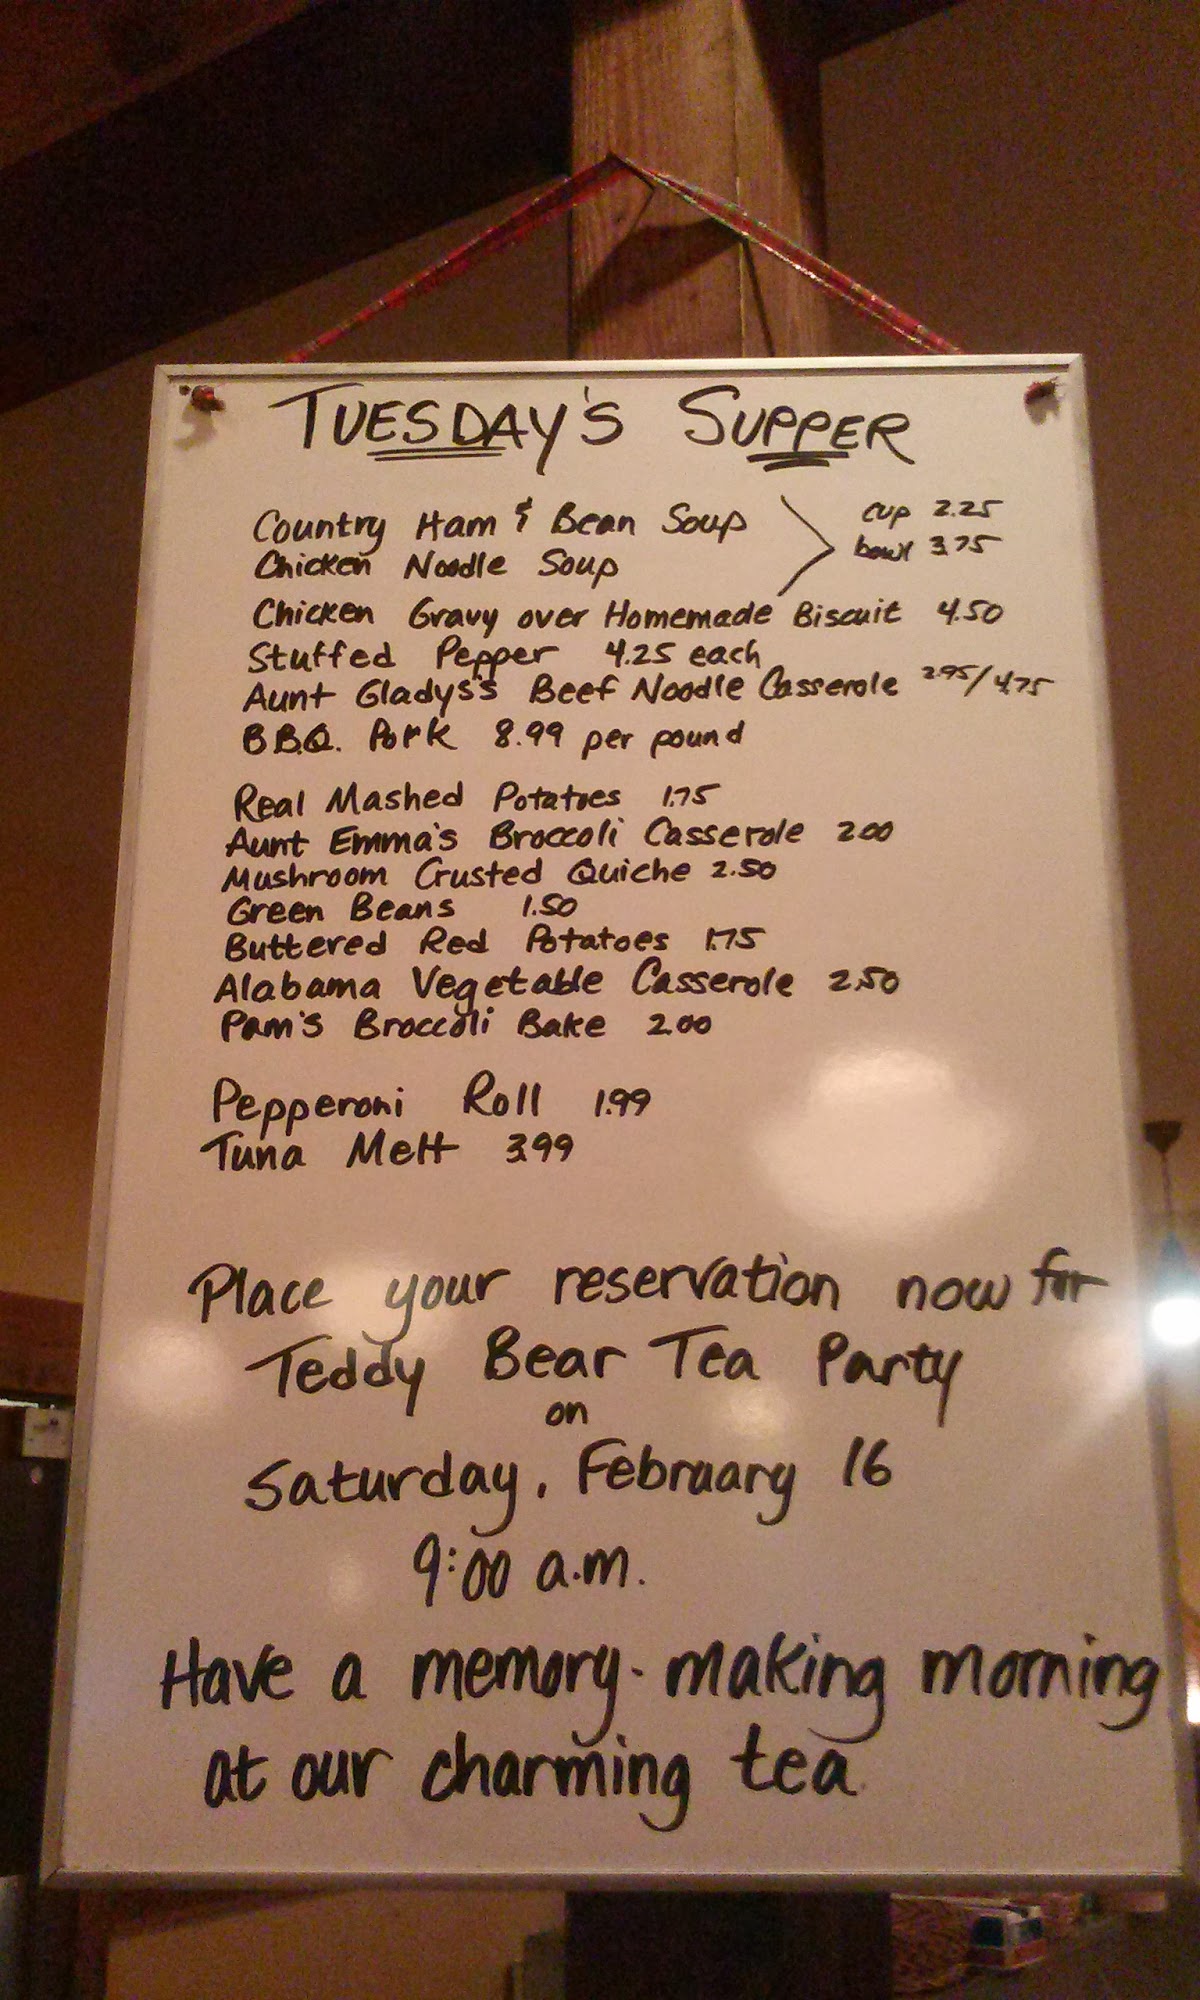 TUESDAY'S SUPPER
Country Ham & Bean Soup cup 2.25
Chicken Noodle Soup bowl 3.75
Chicken Gravy over Homemade Biscuit 4.50
Stuffed Pepper 4.25 each
Aunt Gladys's Beef Noodle Casserole 2.95/4.75
B.B.Q. Pork 8.99 per pound
Real Mashed Potatoes 1.75
Aunt Emma's Broccoli Casserole 2.00
Mushroom Crusted Quiche 2.50
Green Beans 1.50
Buttered Red Potatoes 1.75
Alabama Vegetable Casserole 2.50
Pam's Broccoli Bake 2.00
Pepperoni Roll 1.99
Tuna Melt 3.99
Place your reservation now for
Teddy Bear Tea Party
on
Saturday, February 16
9:00 a.m.
Have a memory-making morning
at our charming tea.